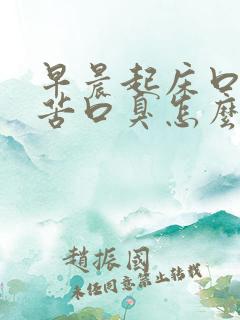 早晨起床口
苦口臭怎麼
趙振國
未經同意禁止轉載